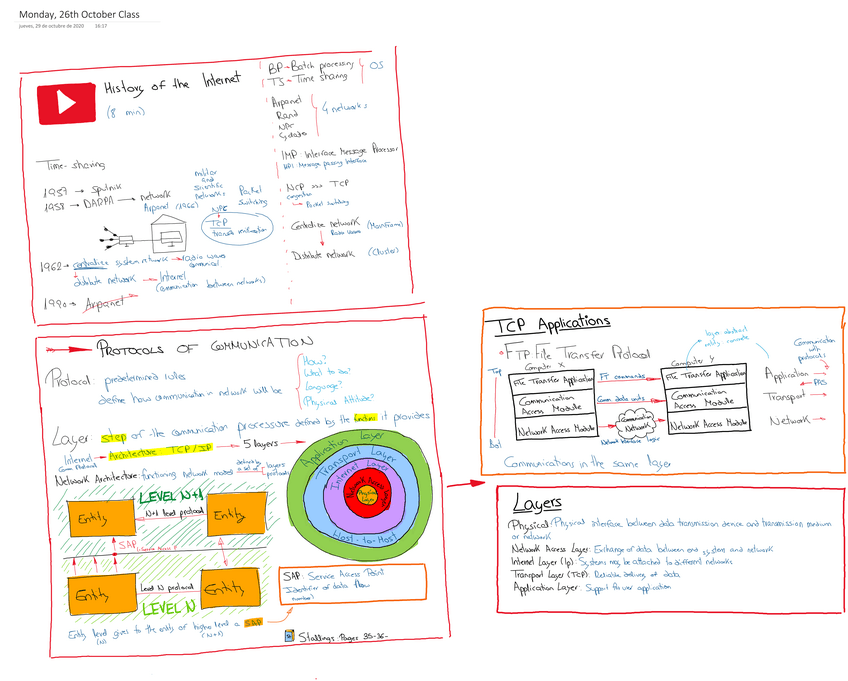 Monday, 26th October Class
jueves, 29 de octubre de 2020 16:17
History of the Internet
(8 min)
Time-sharing
1957 → Sputnik
1958 → DARPA → network
Arpanet (1966)
military
and
scientific
networks
Packet
Switching
NPL
TCP
1962 → centralize system network → radio waves
distribute network → Internet
(communication between networks)
1990 → Arpanet
BP → Batch processing
TS → Time sharing
OS
Arpanet
Rand
NPL
4 networks
IMP: Interface Message Processor
MPI: Message passing Interface
NCP => TCP
congestion
→ Packet switching
Centralize network (Mainframe)
Distribute network (Cluster)
PROTOCOLS OF COMMUNICATION
Protocol: predetermined rules
define how communication in network will be
How?
What to do?
Language?
(Physical Altitude?
Layer: step of the communication processate defined by the functions it provides
Internet → Architecture TCP/IP → 5 layers
Network Architecture: functioning network model defined by a set of layers
protocols
LEVEL N+1
Entity
N+1 level protocol
Entity
SAP
Entity
Level N protocol
Entity
LEVEL N
Entity level gives to the entity of higher level a SAP
(N) (N+1)
Application Layer
Transport Layer
Internet Layer
Network Access Layer
Physical
Layer
Host-to-Host
SAP: Service Access Point
Identifier of data flow
number
Stallings Pages 35-36-
TCP Applications
FTP: File Transfer Protocol
layer abstract
Top
Bot
Computer X
File Transfer Application
Communication
Access Module
Network Access Module
FT commands
Comm data units
Communication
Network
Network Interface Layer
Computer Y
File Transfer Application
Communication
Access Module
Network Access Module
Communication
with
protocols
Application
Transport
Network
Communications in the same layer
Layers
Physical: Physical interface between data transmission device and transmission medium
or network
Network Access Layer: Exchange of data between end system and network
Internet Layer (Ip): Systems may be attached to different networks
Transport Layer (TCP): Reliable delivery of data
Application Layer: Support for user application